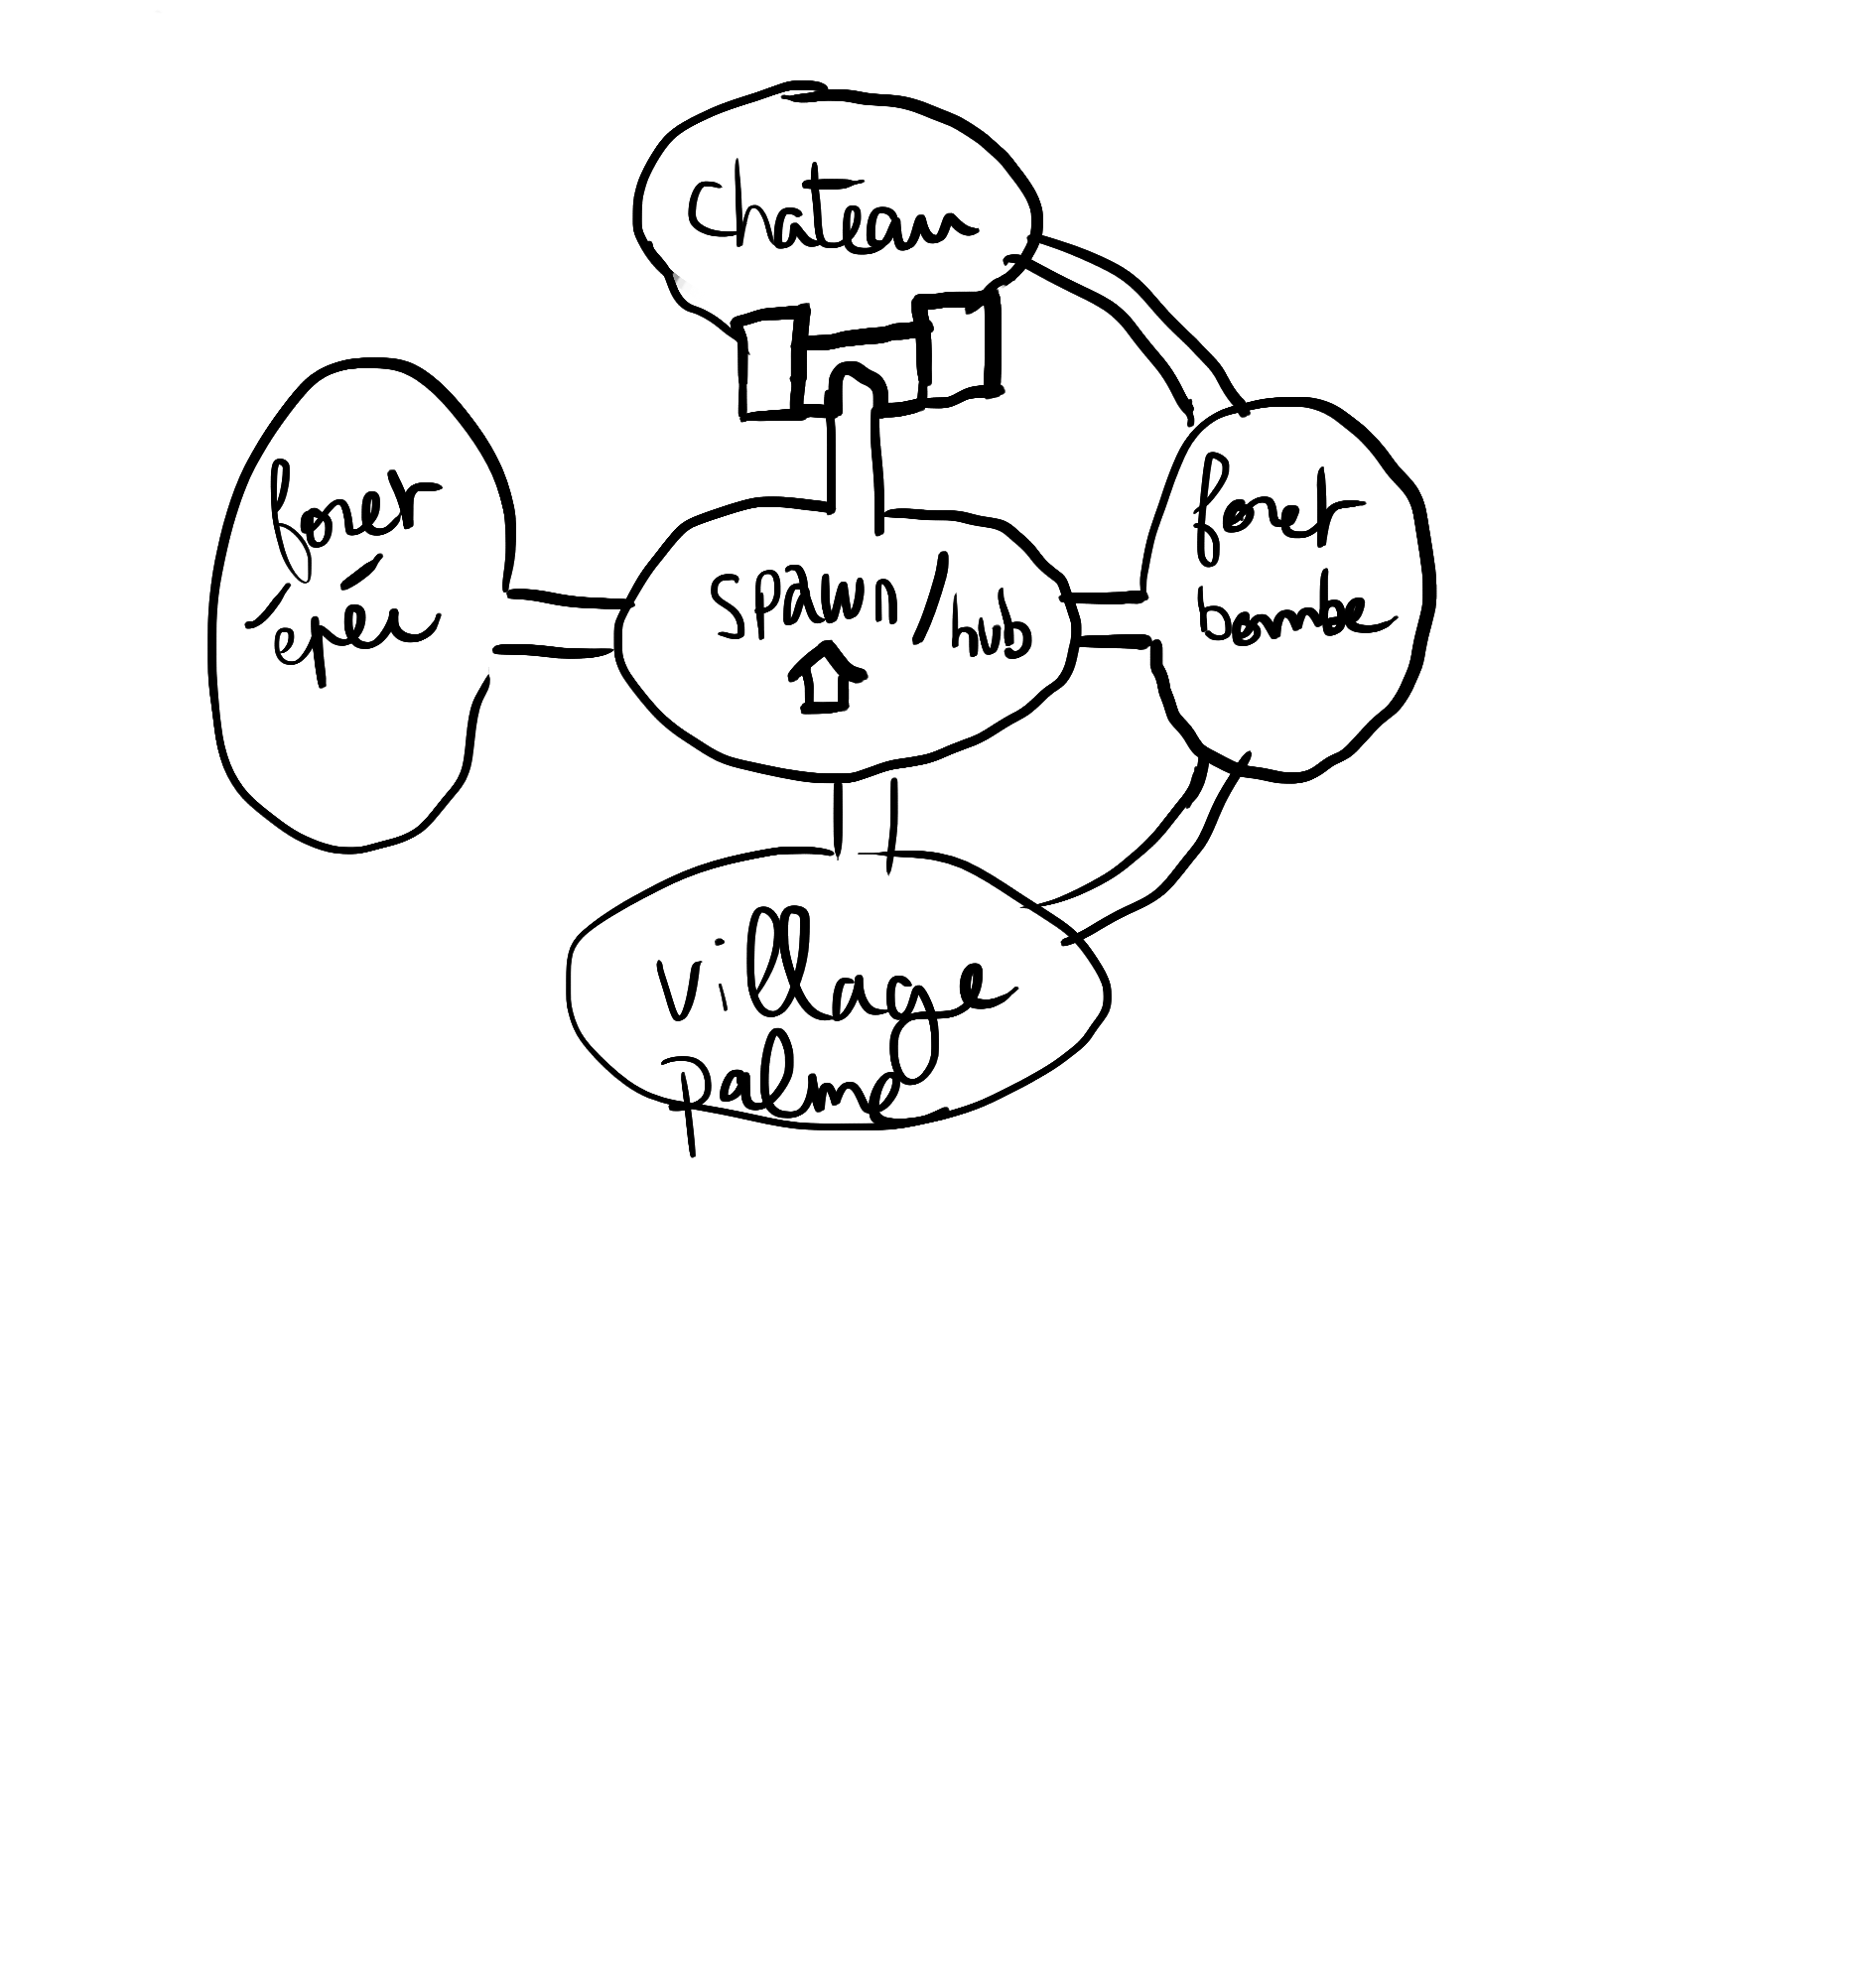 chateau
foret
épée
spawn / hub
foret
bombe
village
palme